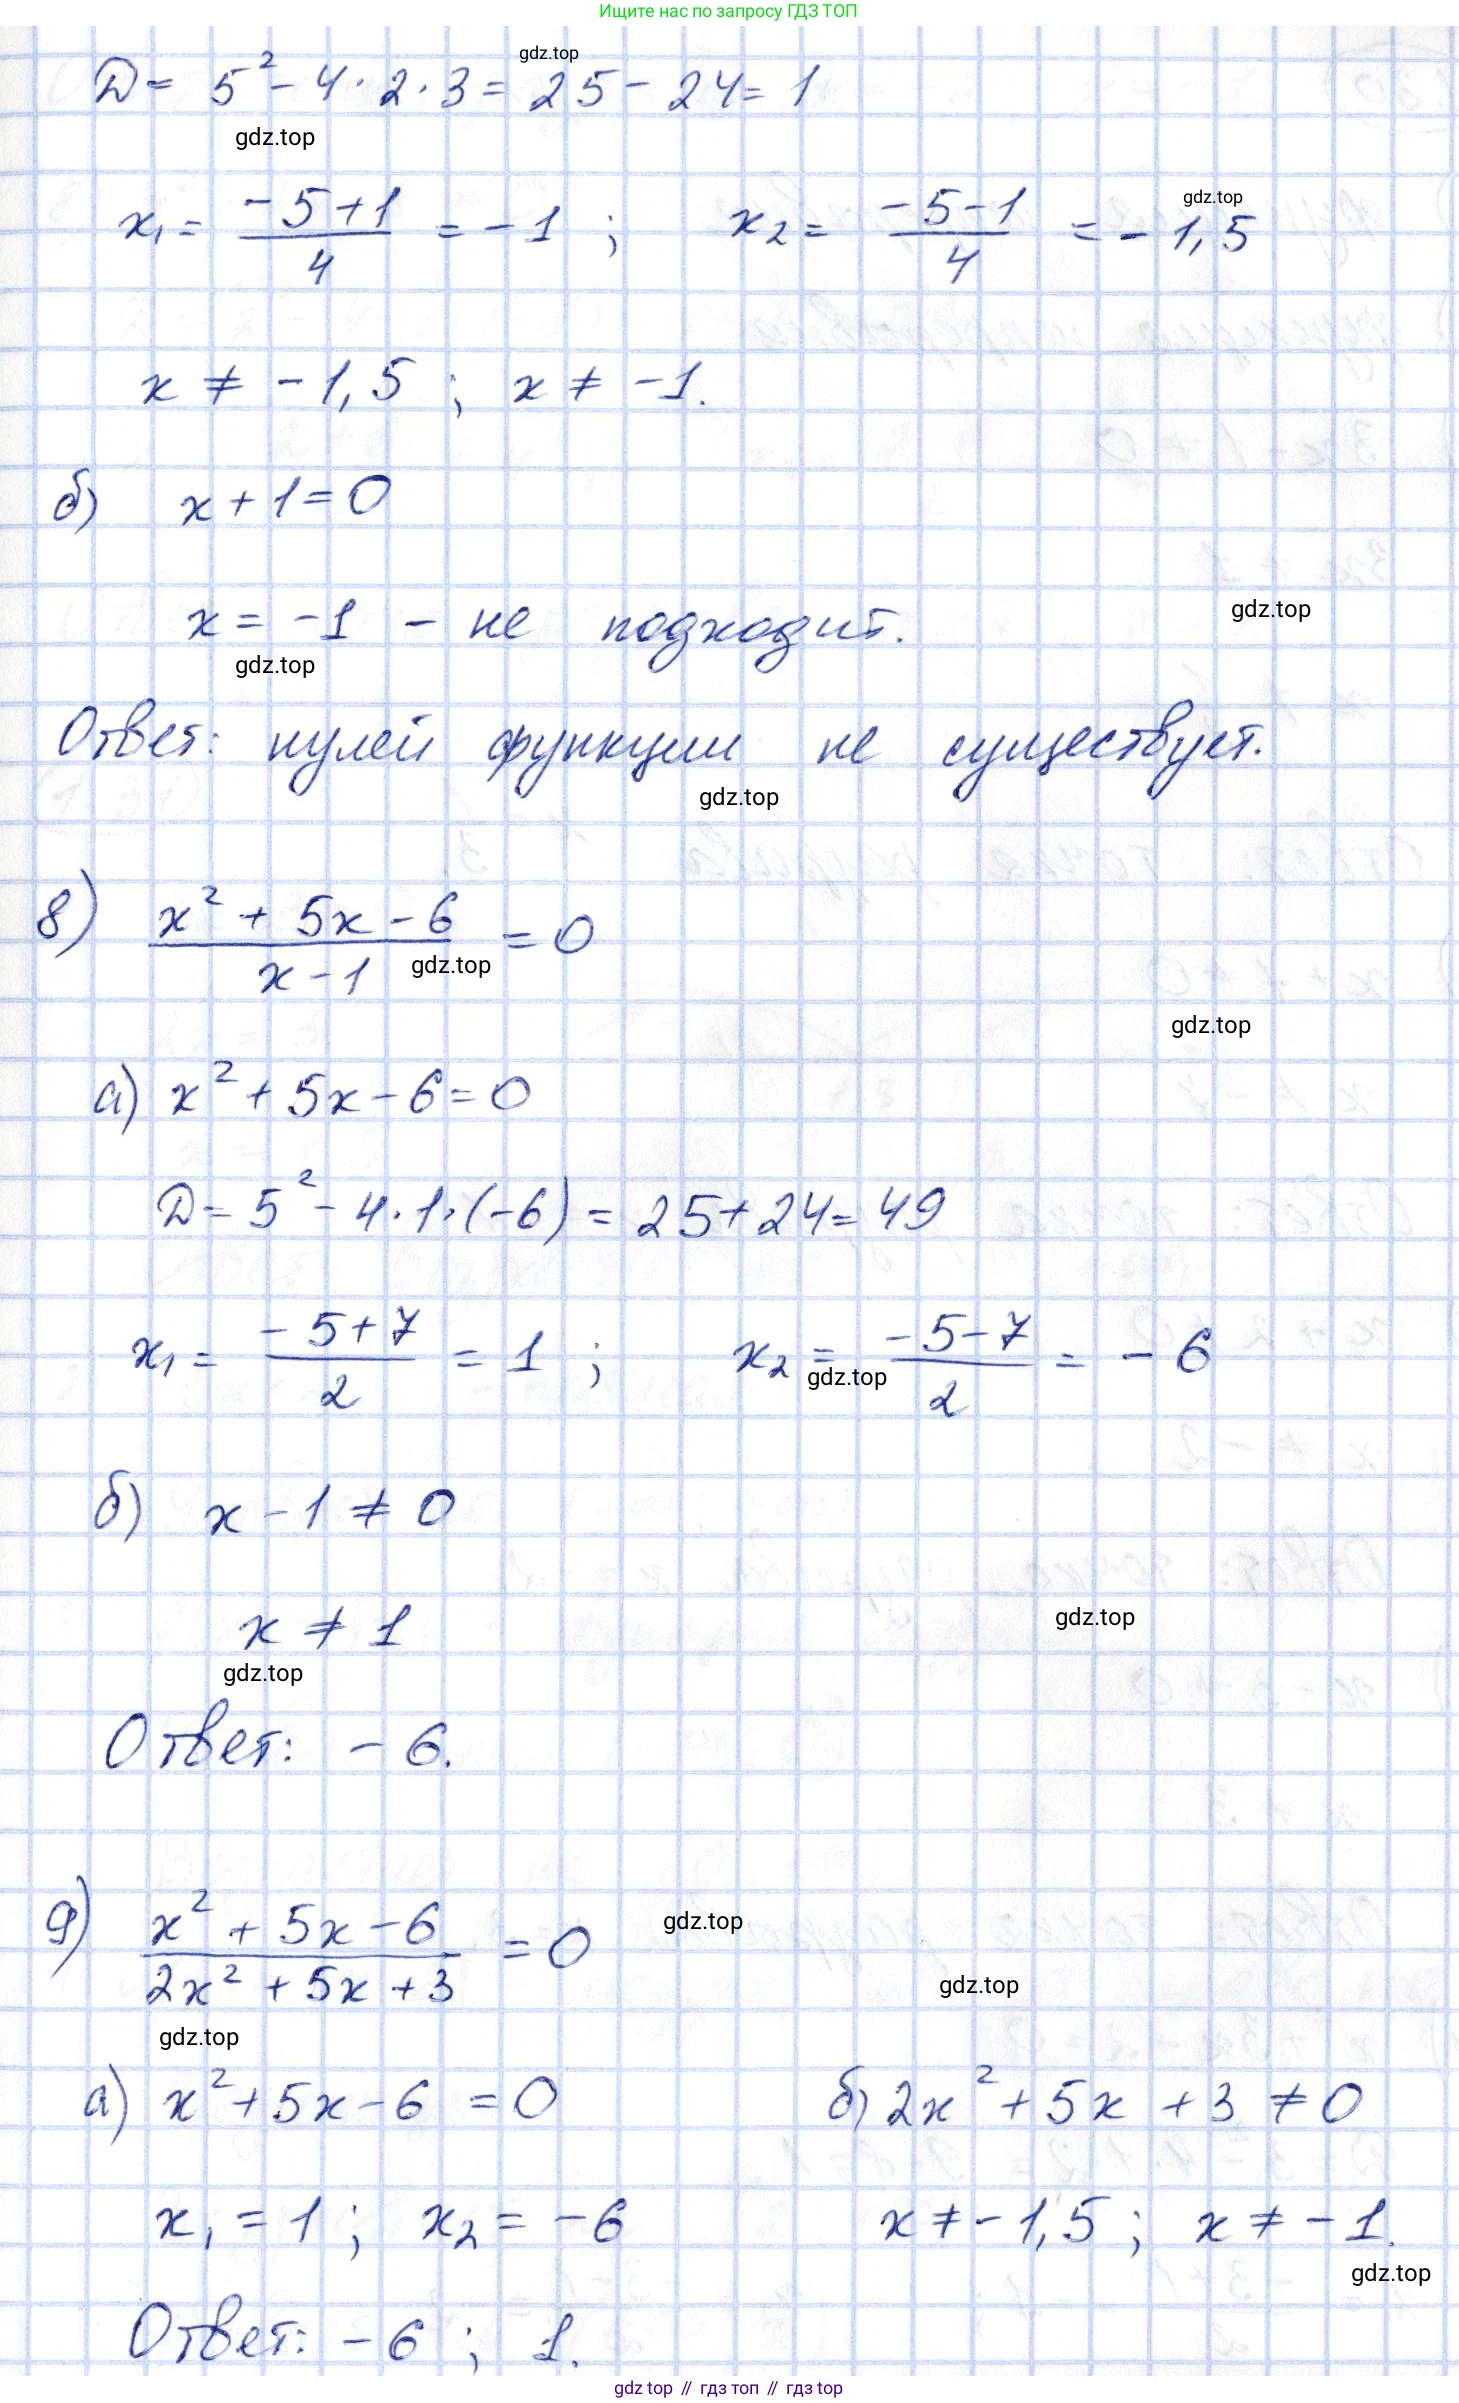 Ищите нас по запросу ГДЗ ТОП
gdz.top
D = 5² - 4 · 2 · 3 = 25 - 24 = 1
gdz.top
gdz.top
x₁ = (-5+1)/4 = -1 ; x₂ = (-5-1)/4 = -1,5
x ≠ -1,5 ; x ≠ -1.
б) x + 1 = 0
gdz.top
x = -1 - не подходит.
gdz.top
Ответ: нулей функции не существует.
gdz.top
8) (x² + 5x - 6)/(x - 1) = 0
gdz.top
gdz.top
а) x² + 5x - 6 = 0
D = 5² - 4 · 1 · (-6) = 25 + 24 = 49
x₁ = (-5+7)/2 = 1 ; x₂ = (-5-7)/2 = -6
gdz.top
б) x - 1 ≠ 0
gdz.top
x ≠ 1
gdz.top
Ответ: -6.
9) (x² + 5x - 6)/(2x² + 5x + 3) = 0
gdz.top
gdz.top
gdz.top
а) x² + 5x - 6 = 0 б) 2x² + 5x + 3 ≠ 0
x₁ = 1 ; x₂ = -6 x ≠ -1,5 ; x ≠ -1.
gdz.top
Ответ: -6 ; 1.
gdz top // гдз топ // гдз top